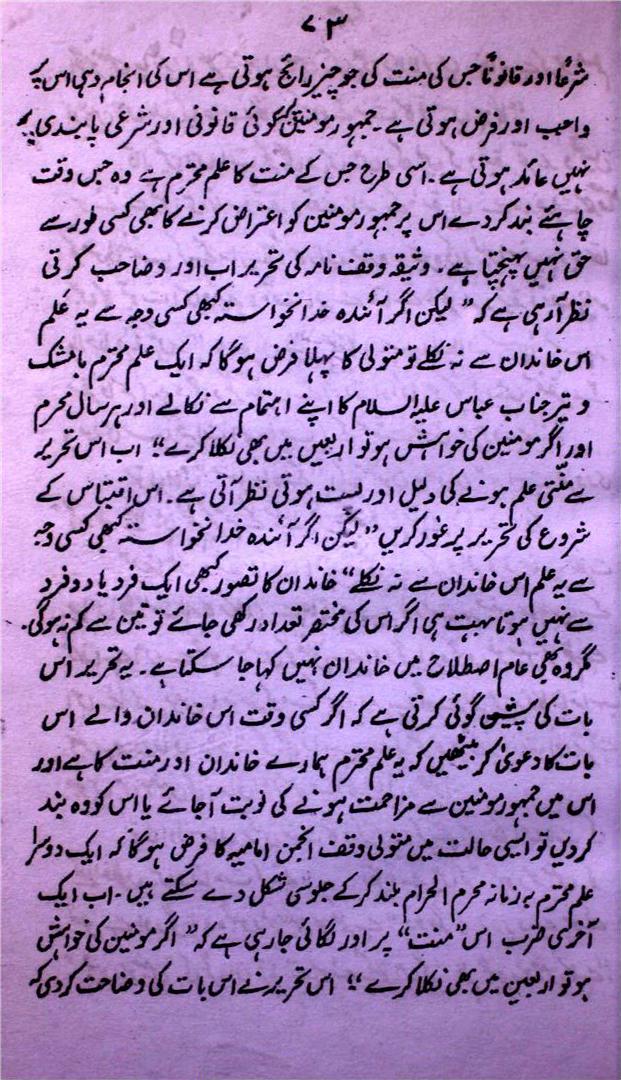 ۷۳
شرعًا اور قانونًا جس کی منت کی جو چیز رائج ہوتی ہے اس کی انجام دہی اس پر
واجب اور فرض ہوتی ہے۔ جمہور مومنین کی کوئی قانونی اور شرعی پابندی پر
نہیں عائد ہوتی ہے۔ اسی طرح جس کے منت کا علم محترم ہے وہ جس وقت
چاہئے بند کر دے اس پر جمہور مومنین کو اعتراض کرنے کا بھی کسی طور سے
حق نہیں پہنچتا ہے۔ وثیقہ وقف نامہ کی تحریر اب اور وضاحب کرتی
نظر آرہی ہے کہ ” لیکن اگر آئندہ خدانخواستہ کبھی کسی وجہ سے یہ عَلم
اس خاندان سے نہ نکلے تو متولی کا پہلا فرض ہوگا کہ ایک علم محترم با مشک
و تیر جناب عباس علیہ السلام کا اپنے اہتمام سے نکالے اور ہر سال محرم
اور اگر مومنین کی خواہش ہو تو اربعین میں بھی نکلا کرے “ اب اس تحریر
سے منّتی علم ہونے کی دلیل اور پست ہوتی نظر آتی ہے۔ اس اقتباس کے
شروع کی تحریر پر غور کریں ” لیکن اگر آئندہ خدانخواستہ کبھی کسی وجہ
سے یہ علم اس خاندان سے نہ نکلے “ خاندان کا تصور کبھی ایک فرد یا دو فرد
سے نہیں ہوتا بہت ہی اگر اس کی مختصر تعداد رکھی جائے تو تین سے کم نہ ہوگی۔
گروہ بھی عام اصطلاح میں خاندان نہیں کہا جا سکتا ہے۔ یہ تحریر اس
بات کی پیشین گوئی کرتی ہے کہ اگر کسی وقت اس خاندان والے اس
بات کا دعویٰ کر بیٹھیں کہ یہ علم محترم ہمارے خاندان اور منت کا ہے اور
اس میں جمہور مومنین سے مزاحمت ہونے کی نوبت آجائے یا اس کو وہ بند
کر دیں تو ایسی حالت میں متولی وقف انجمن امامیہ کا فرض ہوگا کہ ایک دوسرا
علم محترم بہ زمانہ محرم الحرام بلند کر کے جلوسی شکل دے سکتے ہیں۔ اب ایک
آخری ضرب اس ”منت“ پر اور لگائی جا رہی ہے کہ ” اگر مومنین کی خواہش
ہو تو اربعین میں بھی نکلا کرے “ اس تحریر نے اس بات کی وضاحت کر دی کہ